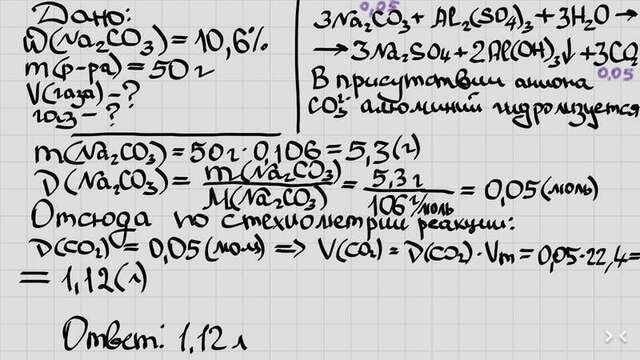 Дано:
ω(Na₂CO₃) = 10,6%
m(р-ра) = 50 г
V(газа) - ?
газ - ?
0,05
3Na₂CO₃ + Al₂(SO₄)₃ + 3H₂O →
→ 3Na₂SO₄ + 2Al(OH)₃↓ + 3CO₂
0,05
В присутствии аниона
CO₃²⁻ алюминий гидролизуется
m(Na₂CO₃) = 50г · 0,106 = 5,3(г)
D(Na₂CO₃) = m(Na₂CO₃) / M(Na₂CO₃) = 5,3г / 106 г/моль = 0,05(моль)
Отсюда по стехиометрии реакции:
D(CO₂) = 0,05(моль) => V(CO₂) = D(CO₂) · Vm = 0,05·22,4 =
= 1,12(л)
Ответ: 1,12 л